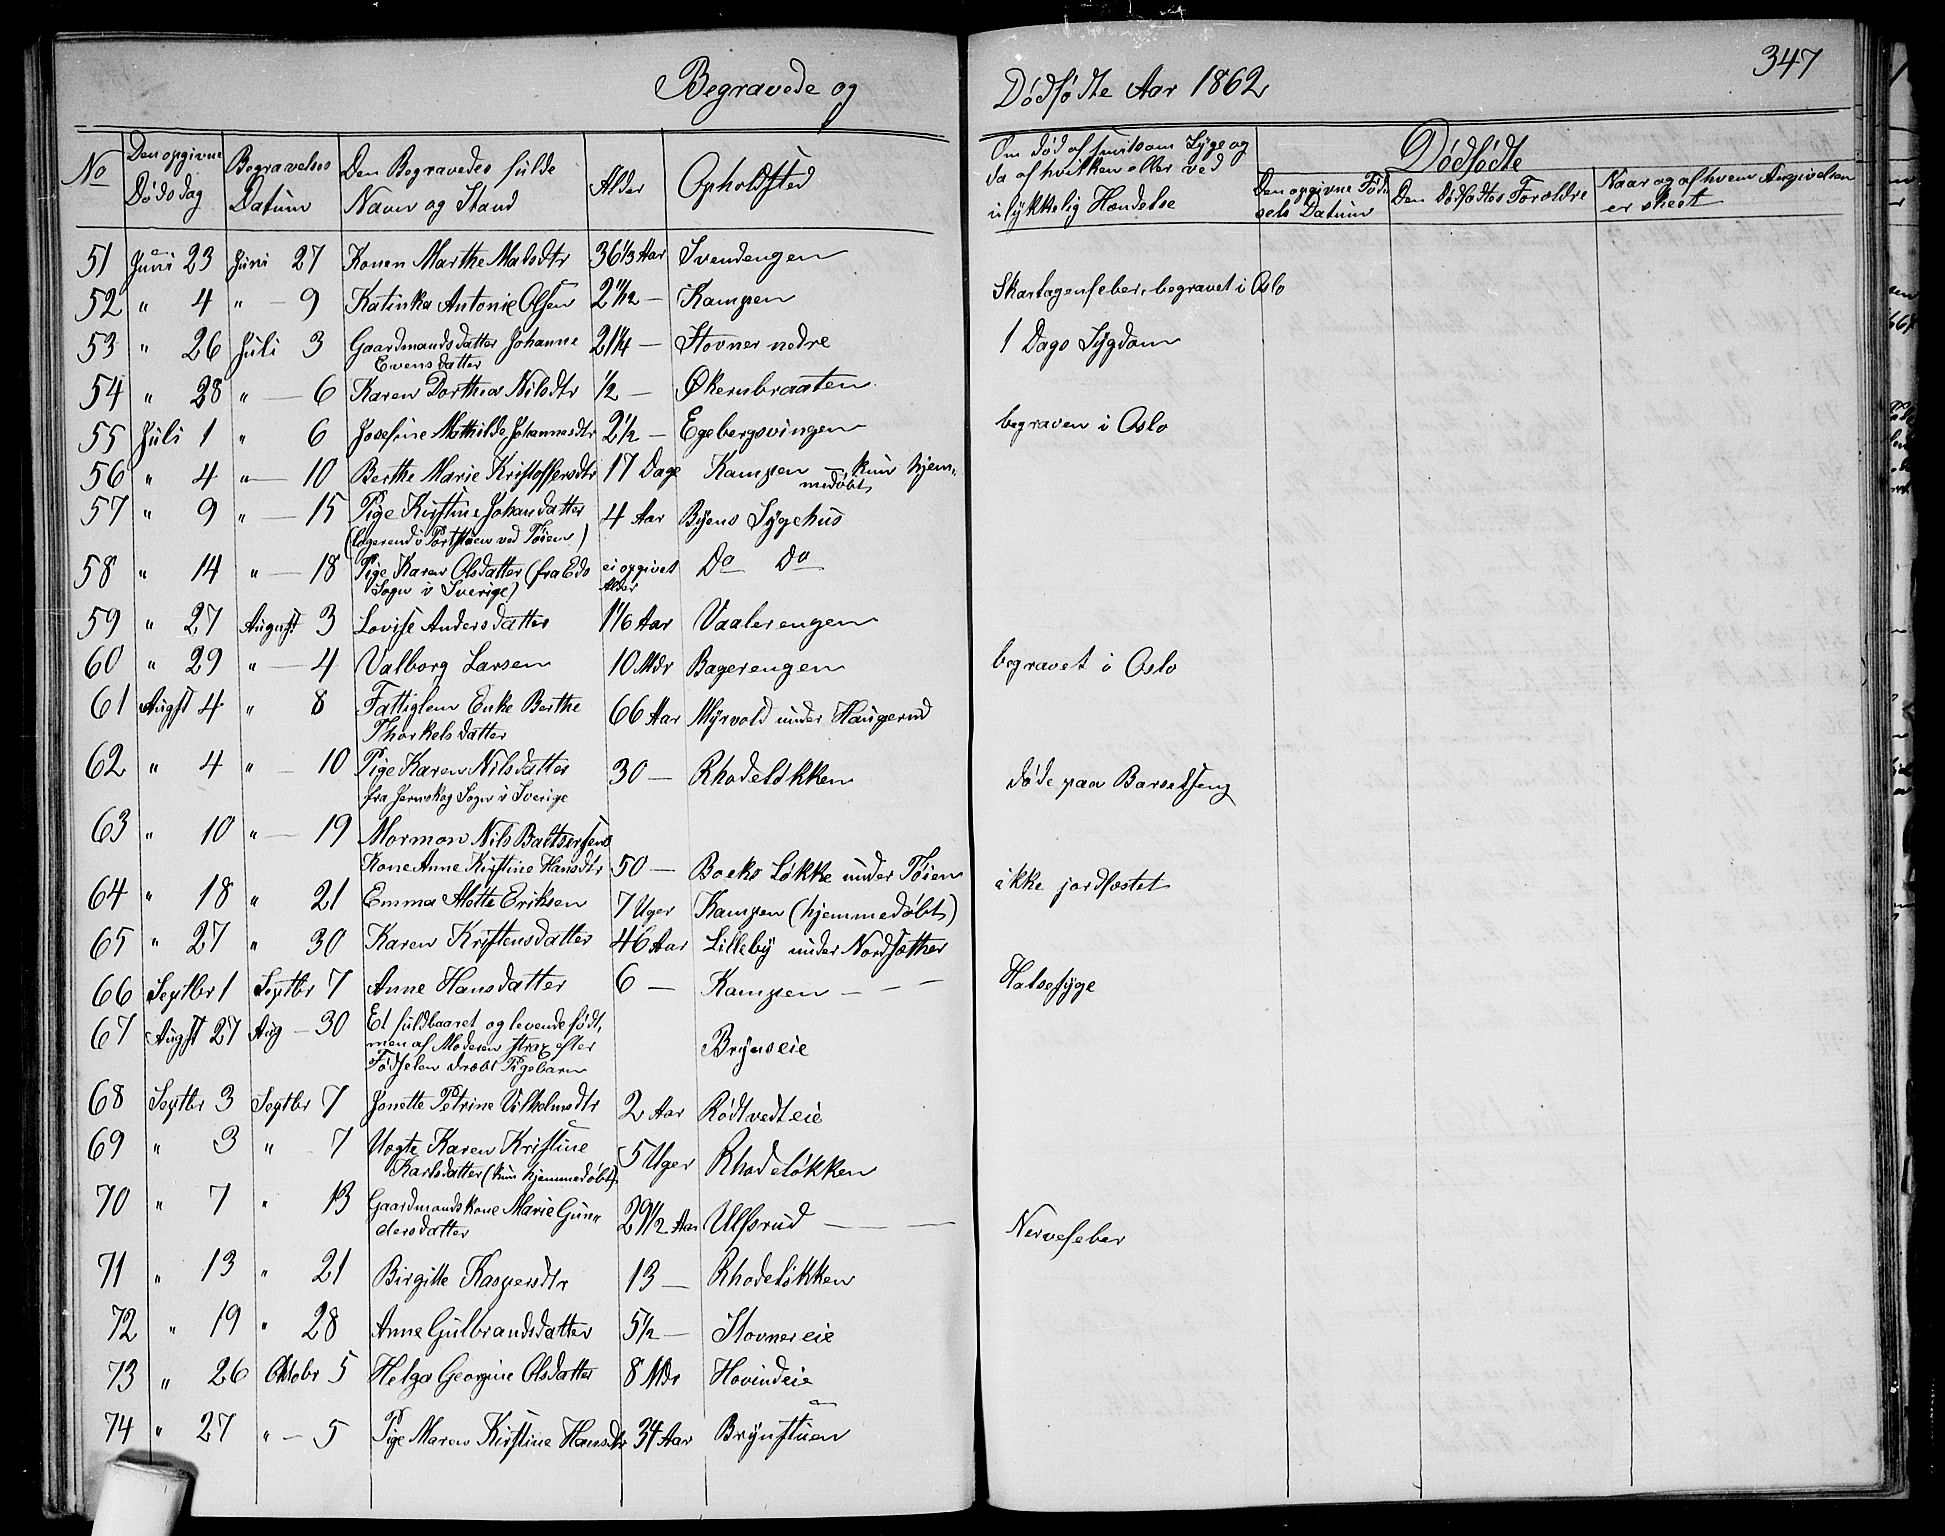 347
Begravede og Dødfødte Aar 1862
No | Den opgivne Dødsdag | Begravelses Datum | Den Begravedes fulde Navn og Stand | Alder | Opholdsted | Om død af smitsom Syge og da af hvilken eller ved ulykkelig Hændelse | Dødfødte
Den opgivne Fødselsels Datum | Den Dødfødtes Forældre | Naar og af hvem Angivelsen er skeet
51 Juni 23 Juni 27 Konen Marthe Malsdtr 36 1/3 Aar Svendengen
52 " 4 " — 9 Katinka Antonie Olsen 2 1/12 — Kampen Skarlagensfeber, begravet i Oslo
53 " 26 Juli 3 Gaardmandsdatter Johanne 21 1/4 — Stovner nedre 1 Dags Sygdom
Evensdatter
54 " 28 " — 6 Karen Dorthea Nilsdtr 1/2 — Økernbraaten
55 Juli 1 " 6 Josefine Mathilde Johannesdtr 2 1/2 — Egebergsvingen begraven i Oslo
56 " 4 " — 10 Berthe Marie Kristoffersdtr 17 Dage Kampen — kun hjem-
medøbt
57 " 9 " — 15 Pige Kirstine Johansdatter 4 Aar Byens Sygehus
(logerend i Portstuen ved Tøien)
58 " 14 " — 18 Pige Karen Olsdatter (fra Eds ei opgivet Do Do
Sogn i Sverige) Alder
59 " 27 August 3 Lovise Andersdatter 1 1/6 Aar Vaalerengen
60 " 29 " — 4 Valborg Larsen 10 Mdr Bagerengen begravet i Oslo
61 Augst 4 " 8 Fattiglem Enke Berthe 66 Aar Myrvold under Haugerud
Thorkelsdatter
62 " 4 " — 10 Pige Karen Nilsdatter 30 — Rhodeløkken døde paa Barselseng
fra Jernskog Sogn i Sverige
63 " 10 " — 19 Mormon Nils Baltsersens
Kone Anne Kirstine Hansdtr 50 — Boeks Løkke under Tøien ikke jordfæstet
64 " 18 " 21 Emma Mette Eriksen 7 Uger Kampen (hjemmedøbt)
65 " 27 " 30 Karen Kristensdatter 46 Aar Lilleby under Nordsæther
66 Septbr 1 Septbr 7 Anne Hansdatter 6 — Kampen — — — Halsesyge
67 Augst 27 Aug — 30 Et fuldbaaret og levendefødt,
men af Moderen strax efter Brynseie
Fødselen dræbt Pigebarn
68 Septbr 3 Septbr 7 Jonette Petrine Vilhelmsdtr 2 Aar Rødtvedteie
69 " 3 " 7 Uægte Karen Kristine 5 Uger Rhodeløkken
Karlsdatter (kun hjemmedøbt)
70 " 7 " 13 Gaardmandskone Marie Gun- 29 1/2 Aar Ulfsrud — — — Nervefeber
dersdatter
71 " 13 " 21 Birgitte Kaspersdtr 13 — Rhodeløkken
72 " 19 " 28 Anne Gulbrandsdatter 5 1/2 — Stovner eie
73 " 26 Oktobr 5 Helga Georgine Olsdatter 8 Mdr Hovindeie
74 " 27 " — 5 Pige Maren Kirstine Hansdtr 34 Aar Brynstuen